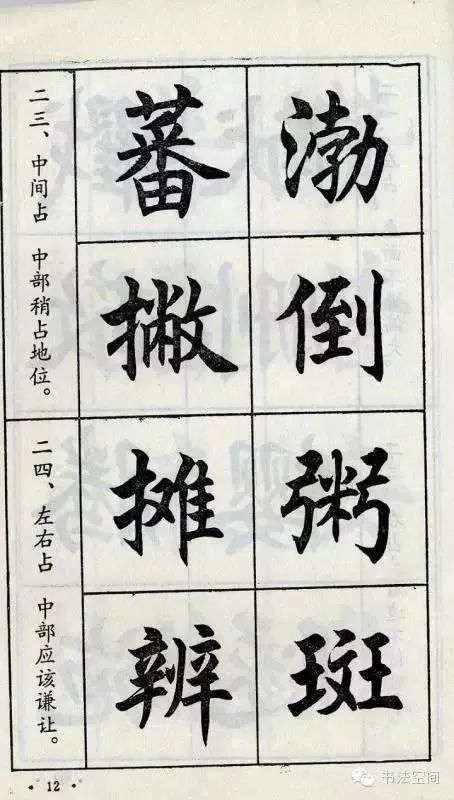 二三、中间占 中部稍占地位。
蕃 渤
撇 倒
二四、左右占 中部应该谦让。
摊 粥
辨 斑
· 12 ·
书法空间